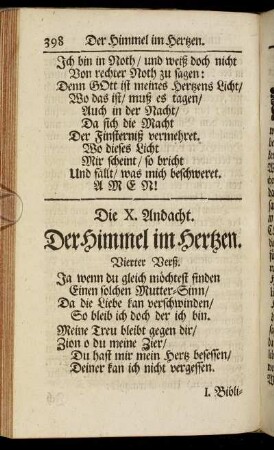 398 Der Himmel im Hertzen.
Ich bin in Noth/ und weiß doch nicht
Von rechter Noth zu sagen:
Denn GOtt ist meines Hertzens Licht/
Wo das ist/ muß es tagen/
Auch in der Nacht/
Da sich die Macht
Der Finsterniß vermehret.
Wo dieses Licht
Mir scheint/ so bricht
Und fällt/ was mich beschweret.
A M E N!
Die X. Andacht.
Der Himmel im Hertzen.
Vierter Verß.
Ja wenn du gleich möchtest finden
Einen solchen Mutter-Sinn/
Da die Liebe kan verschwinden/
So bleib ich doch der ich bin.
Meine Treu bleibt gegen dir/
Zion o du meine Zier/
Du hast mir mein Hertz besessen/
Deiner kan ich nicht vergessen.
I. Bibli-